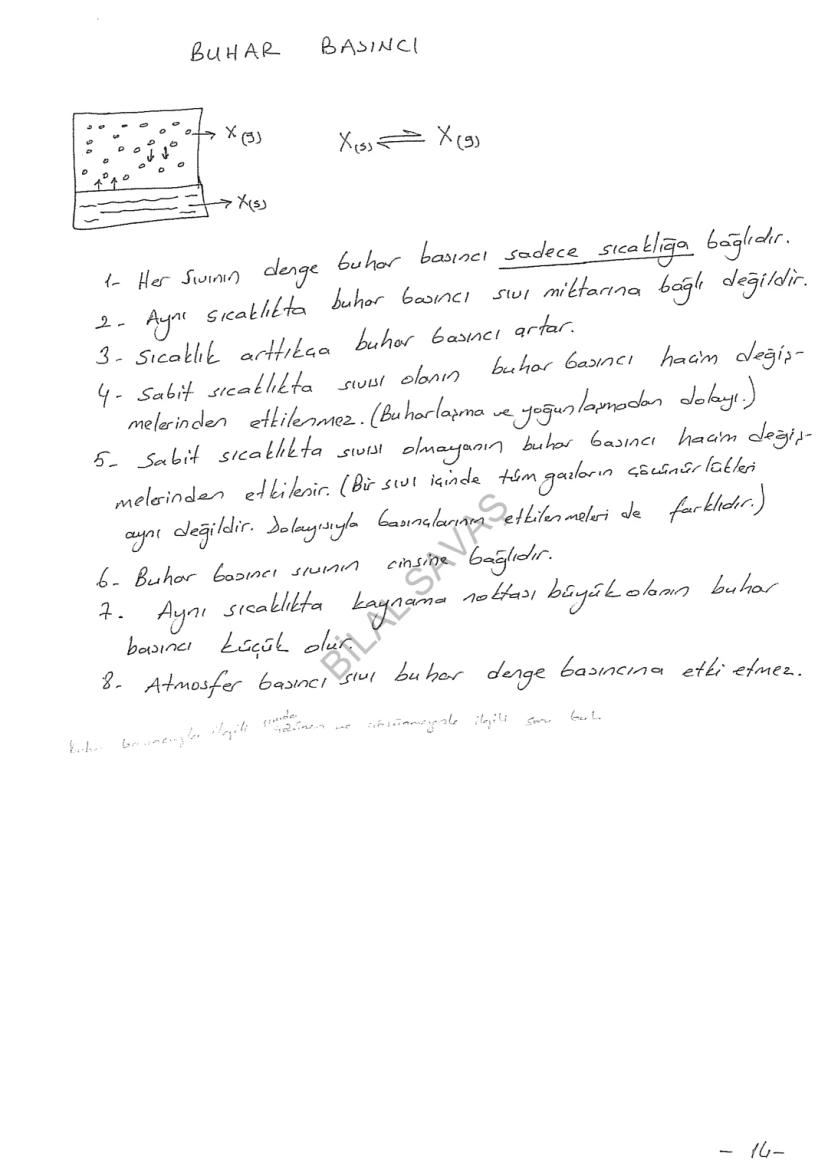 BUHAR BASINCI
X(g)
X(s) ⇌ X(g)
X(s)
1- Her sıvının denge buhar basıncı sadece sıcaklığa bağlıdır.
2- Aynı sıcaklıkta buhar basıncı sıvı miktarına bağlı değildir.
3- Sıcaklık arttıkça buhar basıncı artar.
4- Sabit sıcaklıkta sıvısı olanın buhar basıncı hacim değiş-
melerinden etkilenmez. (Buharlaşma ve yoğunlaşmadan dolayı.)
5- Sabit sıcaklıkta sıvısı olmayanın buhar basıncı hacim değiş-
melerinden etkilenir. (Bir sıvı içinde tüm gazların çözünürlükleri
aynı değildir. Dolayısıyla basınçlarının etkilenmeleri de farklıdır.)
6- Buhar basıncı sıvının cinsine bağlıdır.
7. Aynı sıcaklıkta kaynama noktası büyük olanın buhar
basıncı küçük olur.
8- Atmosfer basıncı sıvı buhar denge basıncına etki etmez.
ilgili ve ilgili soru bul.
BİLAL SAVAŞ
- 14-